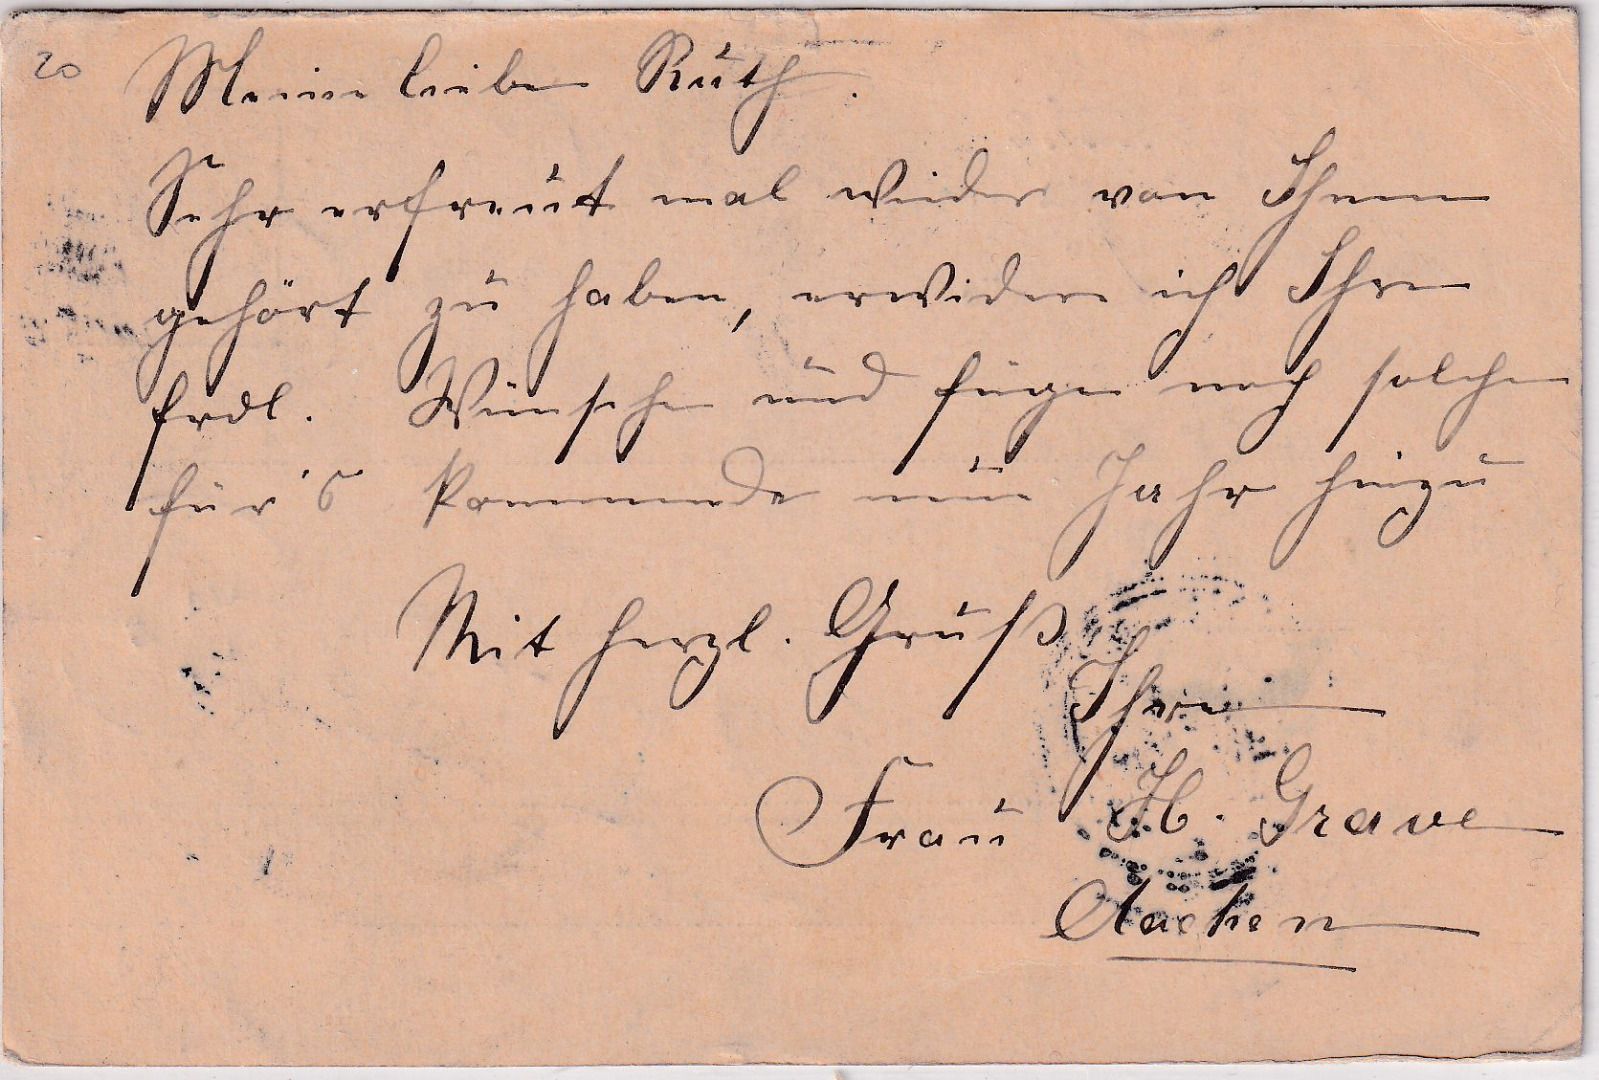 20
Meine lieben Ruth.
Sehr erfreut mal wieder von Ihnen
gehört zu haben, erwidere ich Ihre
frdl. Wünsche und füge noch solche
für's kommende neue Jahr hinzu
Mit herzl. Gruß
Ihre
Frau H. Grave
Aachen